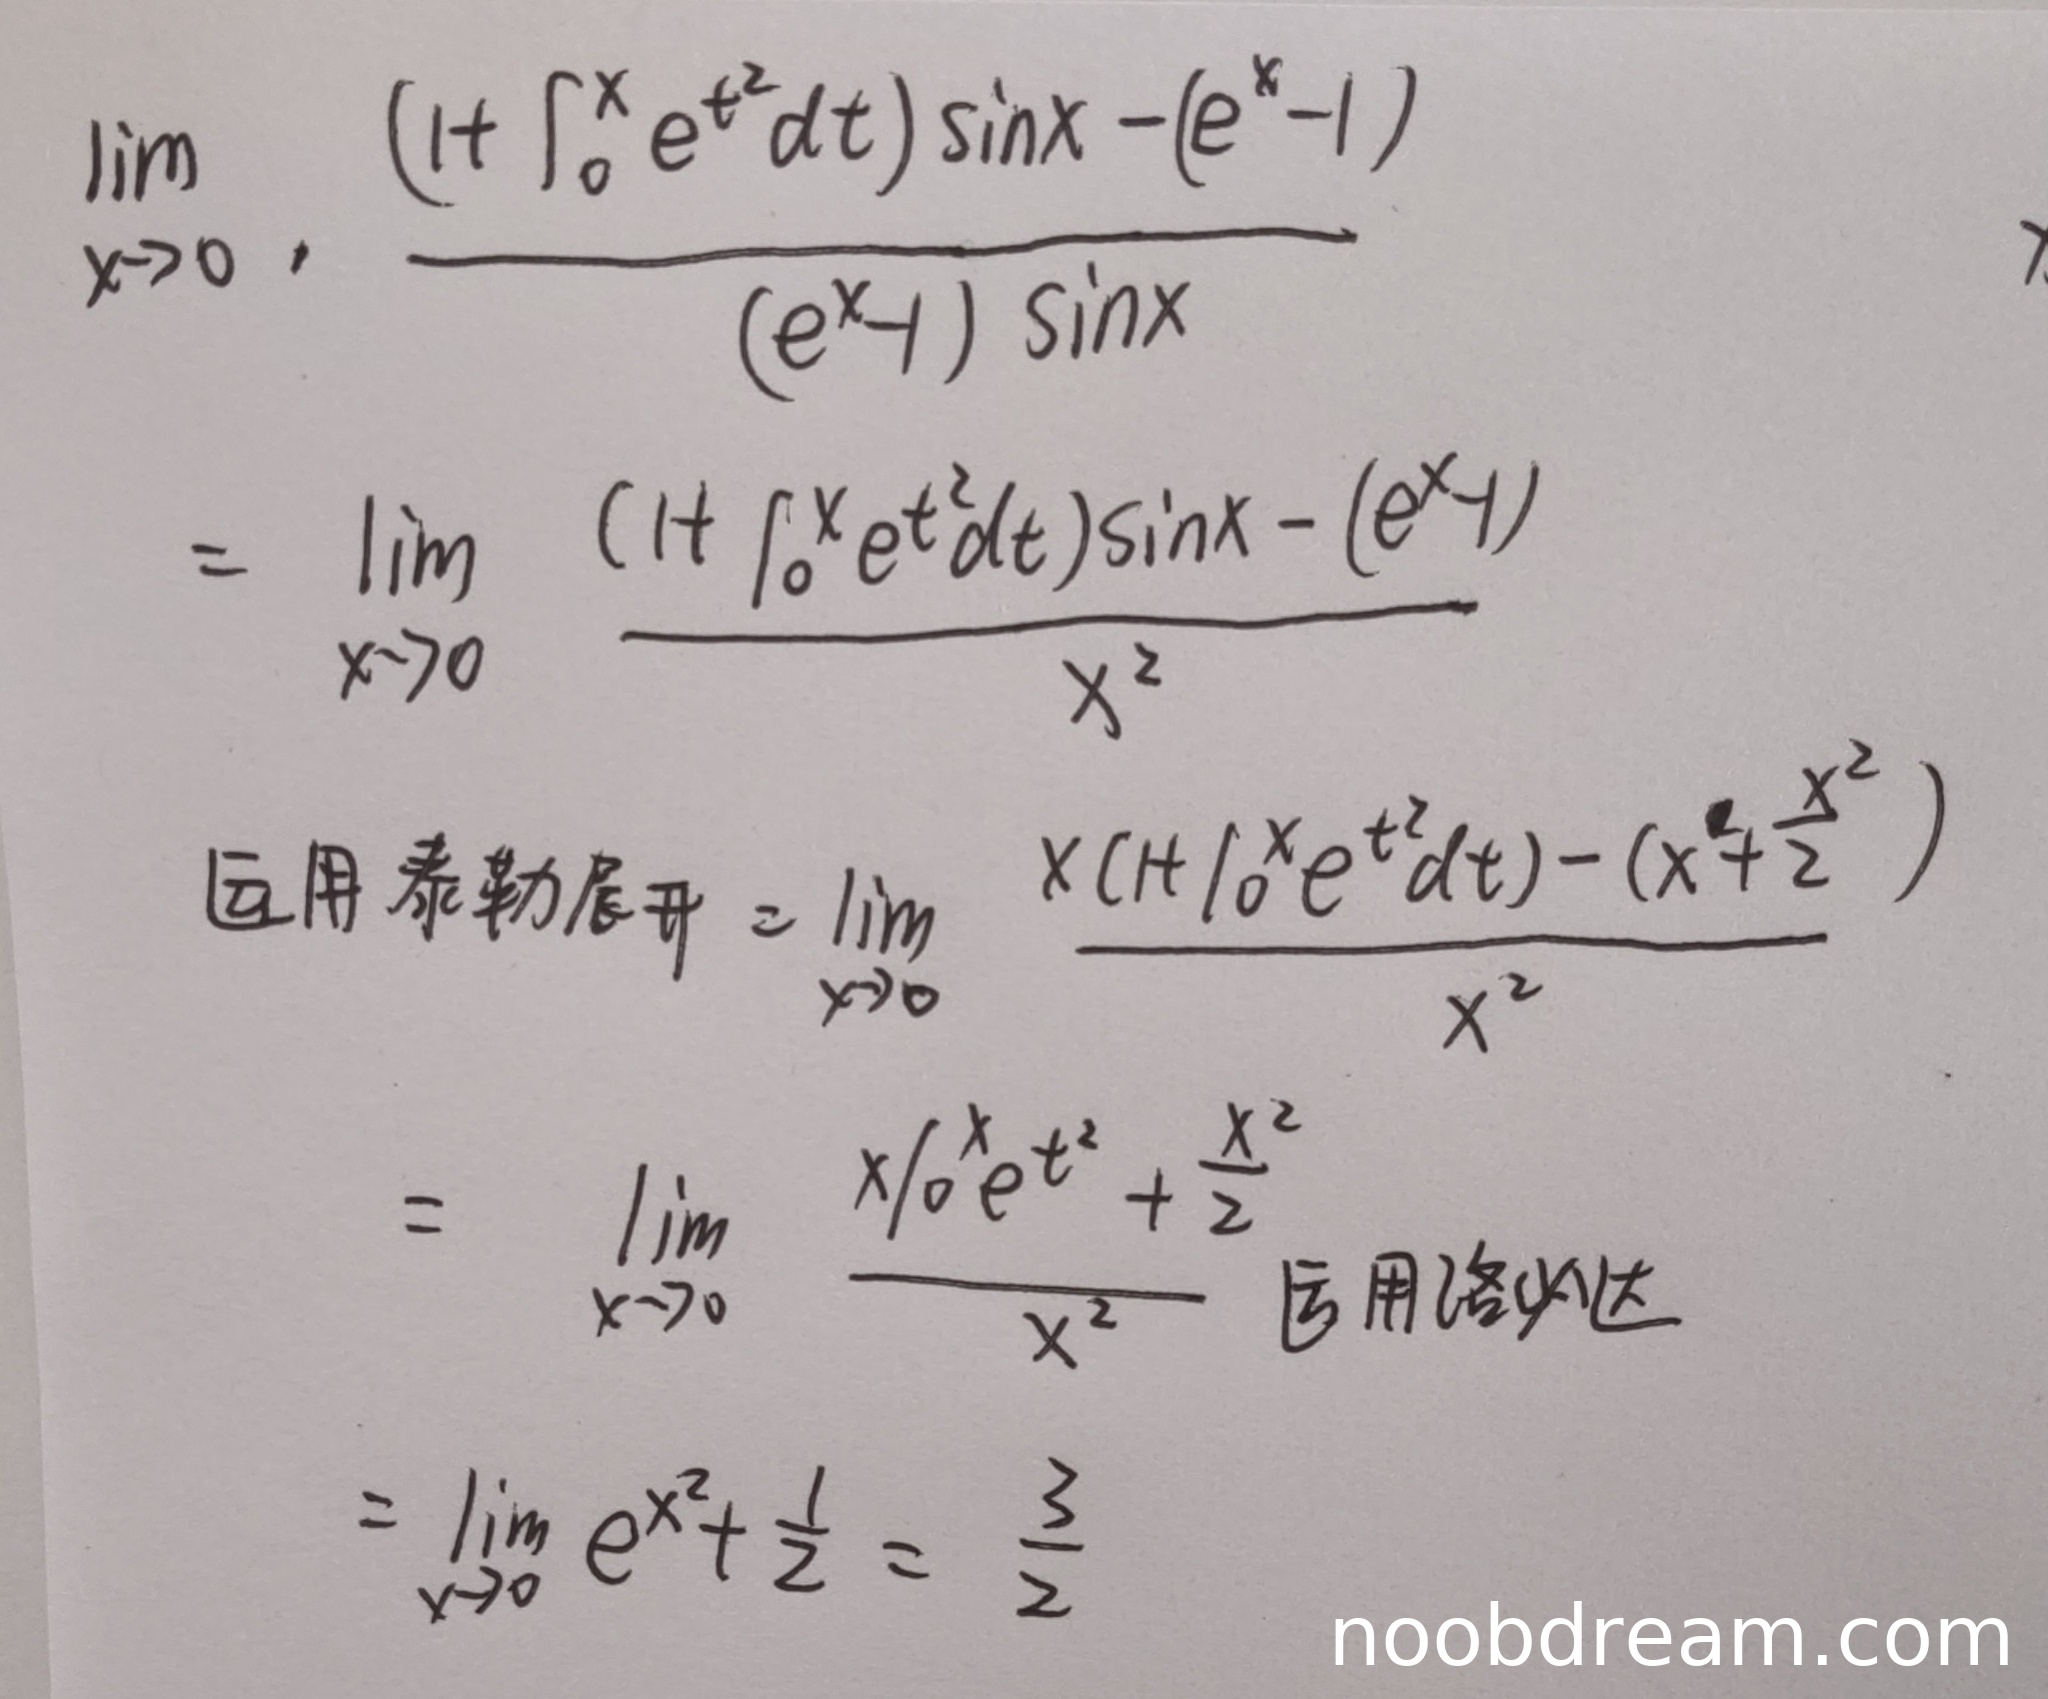 lim x→0 ((1+∫₀ˣ e^{t²}dt) sinx -(e^x-1)) / ((e^x-1) sinx)
= lim x→0 ((1+∫₀ˣ e^{t²}dt)sinx - (e^x-1)) / x²
运用泰勒展开 = lim x→0 (x(1+∫₀ˣ e^{t²}dt) - (x+x²/2)) / x²
= lim x→0 (x∫₀ˣ e^{t²} + x²/2) / x² 运用洛必达
= lim x→0 e^{x²} + 1/2 = 3/2
noobdream.com